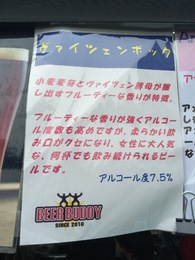 ヴァイツェンボック
小麦麦芽とヴァイツェン酵母が醸
し出すフルーティーな香りが特徴。
フルーティーな香りが強くアルコー
ル度数も高めですが、柔らかい飲
み口がクセになり、女性に大人気
な、何杯でも飲み続けられるビー
ルです。
アルコール度7.5%
BEER BUDDY
SINCE 2010